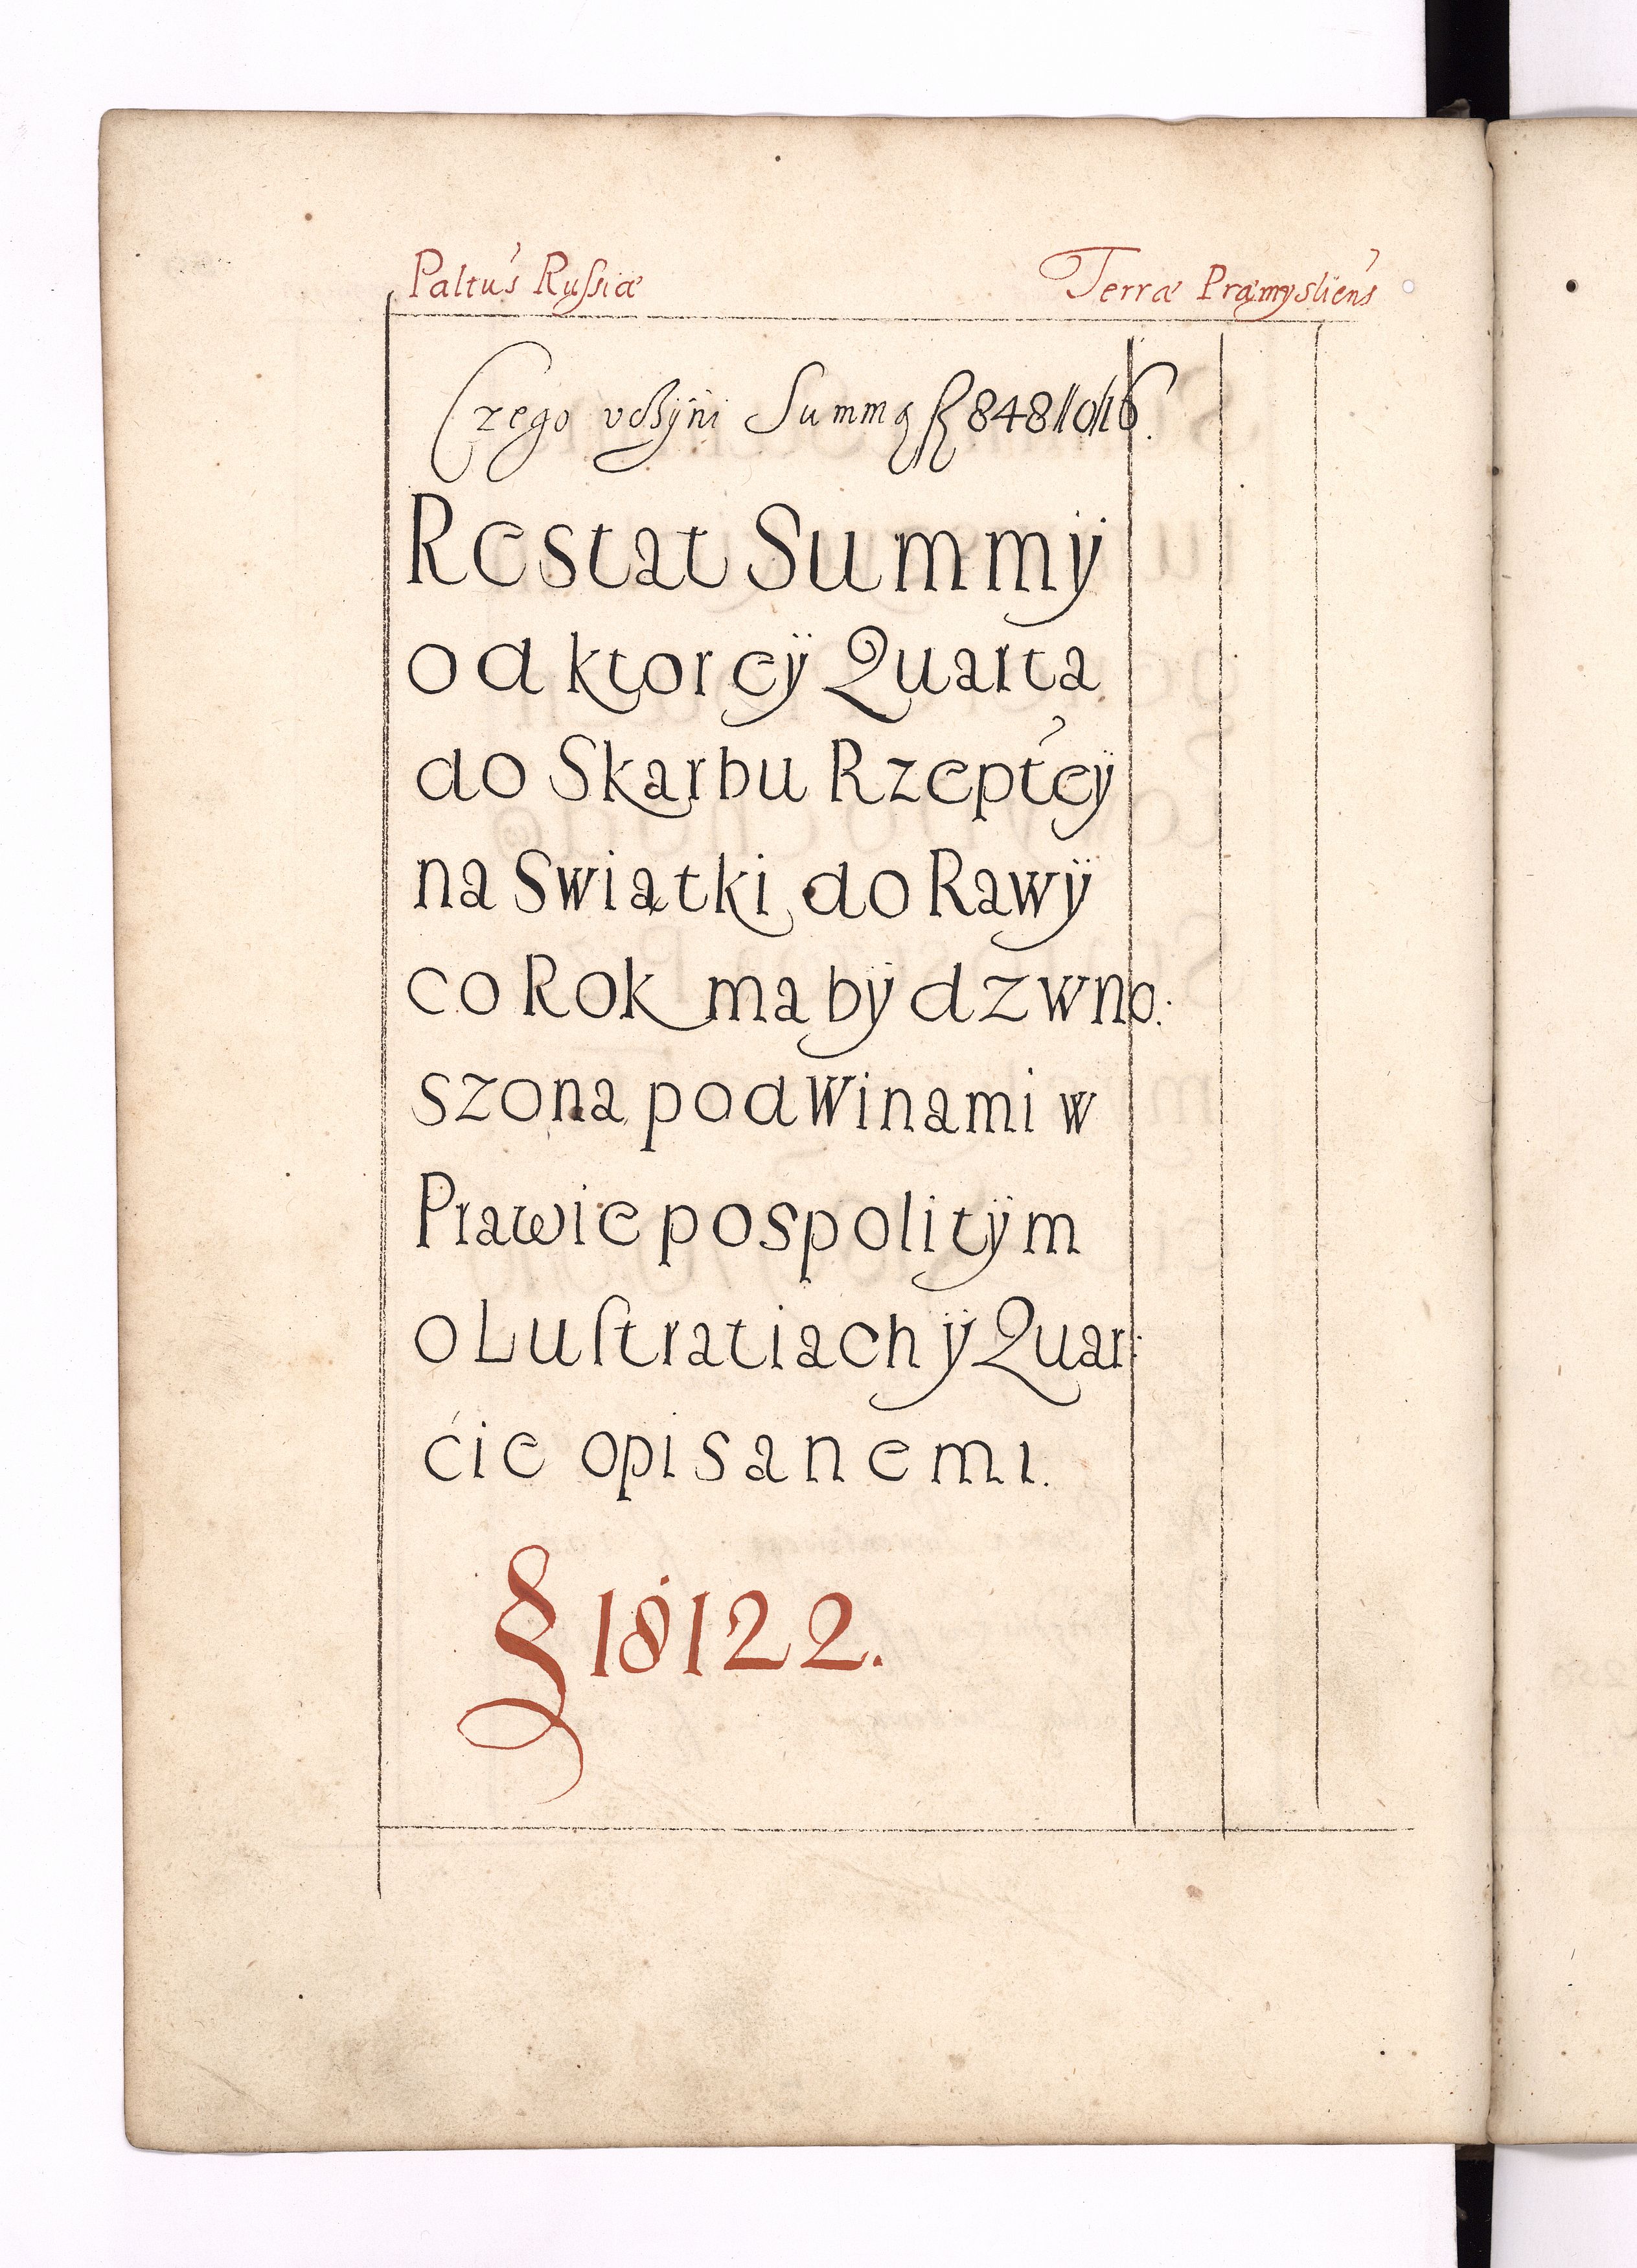 Paltus Russiæ
Terræ Præmysliens
Czego vczÿni Summą fl 848//0/16.
Restat Summÿ
od ktorcÿ Quarta
do Skarbu Rzeptcÿ
na Swiątki do Rawÿ
co Rok ma bÿdz wno:
szona pod Winami w
Prawie pospolitÿm
o Luſtratiach ÿ Quar:
ćie opisanemi.
18122.